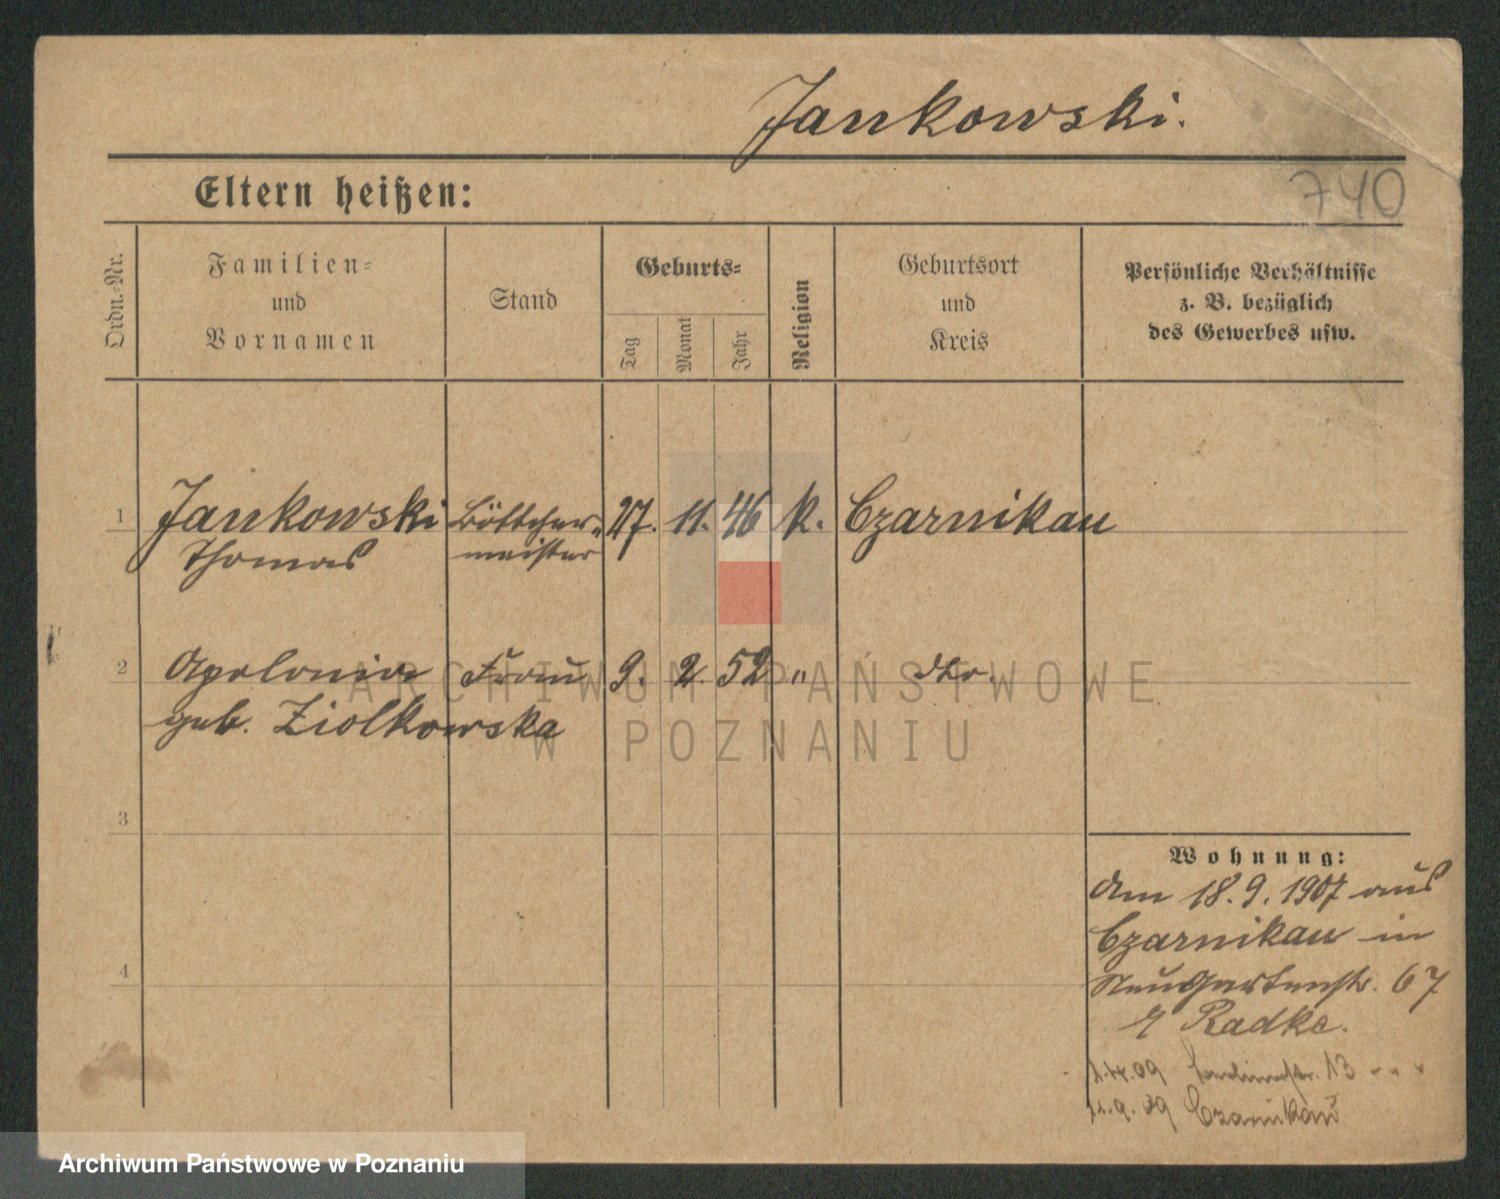 Jankowski.
Eltern heißen:
740
Ordn.-Nr.
Familien-
und
Vornamen
Stand
Geburts-
Tag
Monat
Jahr
Religion
Geburtsort
und
Kreis
Persönliche Verhältnisse
z. B. bezüglich
des Gewerbes usw.
1 Jankowski Böttcher- 27. 11. 46 k. Czarnikau
Thomas meister
2 Apolonia Frau 9. 2. 52 " dto.
geb. Ziolkowska
ARCHIWUM PAŃSTWOWE
W POZNANIU
3
4
Wohnung:
Am 18.9.1907 aus
Czarnikau in
Neugartenstr. 67
Radke.
09 13
9. 09 Czarnikau
Archiwum Państwowe w Poznaniu